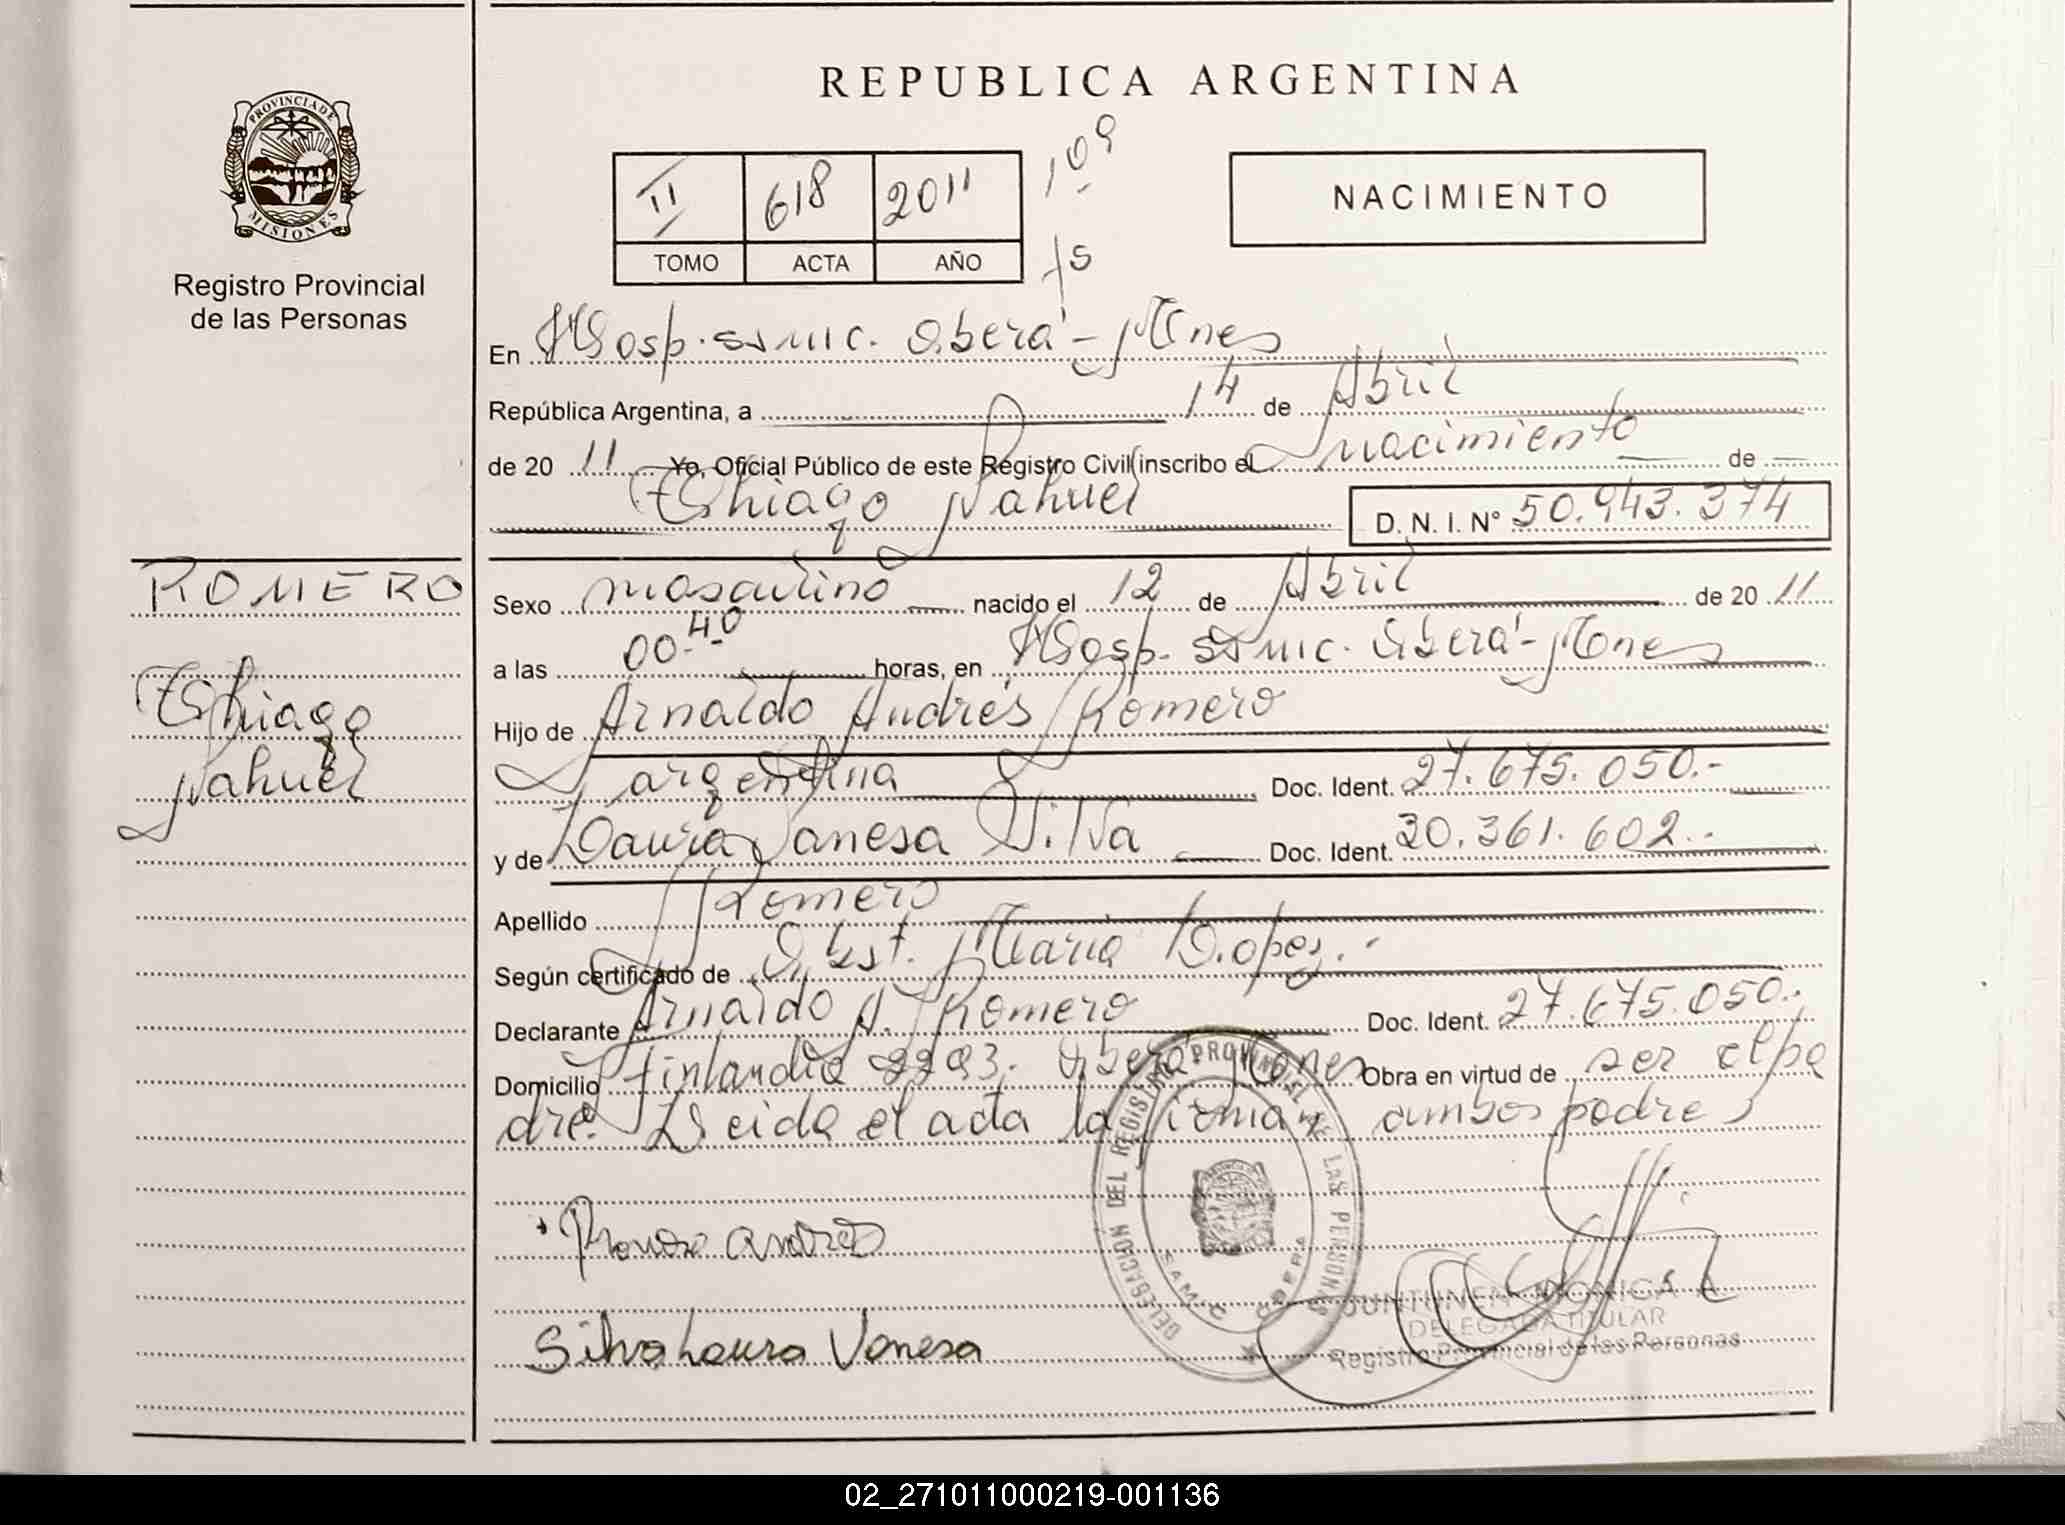 REPUBLICA ARGENTINA
PROVINCIA DE MISIONES
Registro Provincial
de las Personas
II 618 2011 10º
TOMO ACTA AÑO
NACIMIENTO
En Hosp. ssmic. Oberá - Mnes
República Argentina, a 14 de Abril
de 2011 Yo, Oficial Público de este Registro Civil inscribo el nacimiento de
Thiago Nahuel D. N. I. Nº 50.943.374
ROMERO
Thiago
Nahuel
Sexo masculino nacido el 12 de Abril de 2011
a las 00.40 horas, en Hosp. ssmic. Oberá - Mnes
Hijo de Arnaldo Andrés Romero
argentina Doc. Ident. 27.675.050.-
y de Laura Vanesa Silva Doc. Ident. 30.361.602.-
Apellido Romero
Según certificado de Obst. María Lopez.-
Declarante Arnaldo A. Romero Doc. Ident. 27.675.050.-
Domicilio Finlandia 2293. Oberá Mones Obra en virtud de ser el pa
dre. Leida el acta la firman ambos padres
Romero Andres
Silva Laura Vanesa
DELEGACION DEL REGISTRO PROVINCIAL DE LAS PERSONAS
SAMIC OBERA
JUNTUNEN MONICA
DELEGADA TITULAR
Registro Provincial de las Personas
02_271011000219-001136